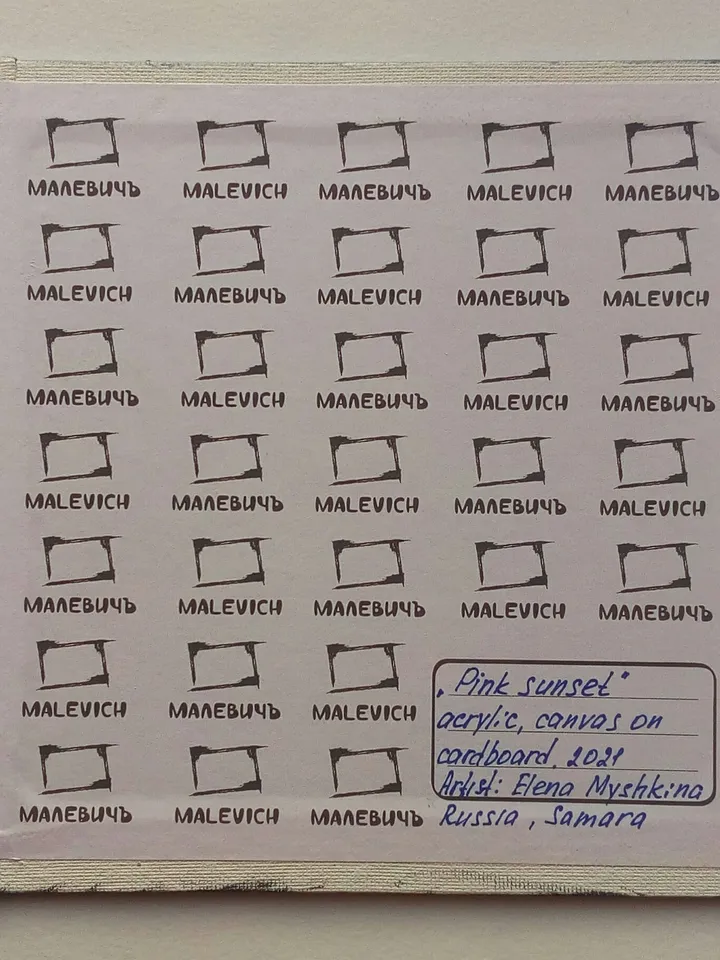 МАЛЕВИЧЪ MALEVICH МАЛЕВИЧЪ MALEVICH МАЛЕВИЧЪ
MALEVICH МАЛЕВИЧЪ MALEVICH МАЛЕВИЧЪ MALEVICH
МАЛЕВИЧЪ MALEVICH МАЛЕВИЧЪ MALEVICH МАЛЕВИЧЪ
MALEVICH МАЛЕВИЧЪ MALEVICH МАЛЕВИЧЪ MALEVICH
МАЛЕВИЧЪ MALEVICH МАЛЕВИЧЪ MALEVICH МАЛЕВИЧЪ
MALEVICH МАЛЕВИЧЪ MALEVICH
МАЛЕВИЧЪ MALEVICH МАЛЕВИЧЪ
„Pink sunset"
acrylic, canvas on
cardboard, 2021
Artist: Elena Myshkina
Russia, Samara